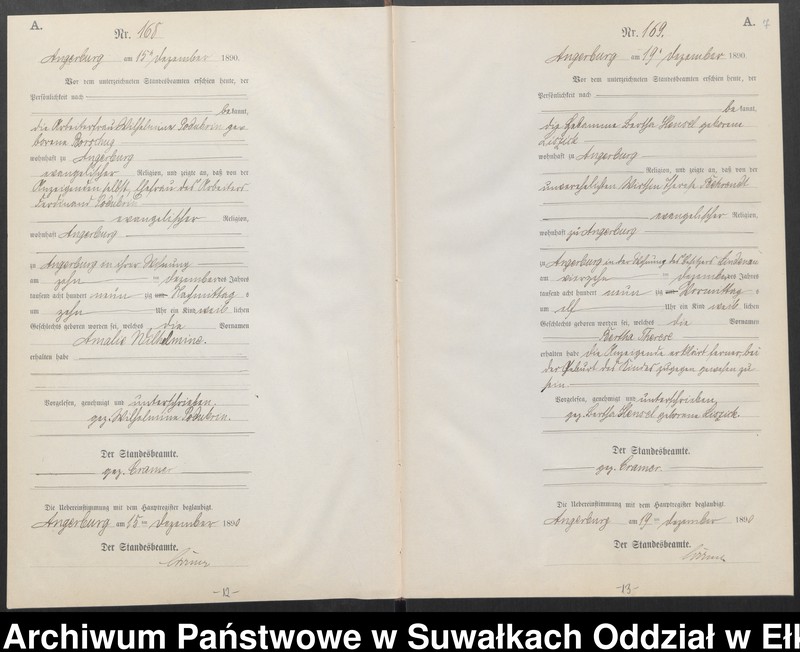 A.
Nr. 168
Angerburg am 15ten Dezember 1890.
Vor dem unterzeichneten Standesbeamten erschien heute, der
Persönlichkeit nach
bekannt,
die Arbeiterfrau Wilhelmine geborene
wohnhaft zu Angerburg
evangelischer Religion, und zeigte an, daß von der
Anzeigenden selbst, Ehefrau des Arbeiters
Ferdinand
evangelischer Religion,
wohnhaft Angerburg
zu Angerburg in ihrer Wohnung
am zehn ten Dezember des Jahres
tausend acht hundert neun zig um Nachmittag s
um zehn Uhr ein Kind weib lichen
Geschlechts geboren worden sei, welches die Vornamen
Amalie Wilhelmine.
erhalten habe
Vorgelesen, genehmigt und unterschrieben.
gez. Wilhelmine
Der Standesbeamte.
gez. Cramer
Die Uebereinstimmung mit dem Hauptregister beglaubigt.
Angerburg am 15ten Dezember 1890
Der Standesbeamte.
-12-
A.
Nr. 169.
Angerburg am 19t Dezember 1890.
Vor dem unterzeichneten Standesbeamten erschien heute, der
Persönlichkeit nach
bekannt,
die Hebamme Bertha Hensel geborene
wohnhaft zu Angerburg
Religion, und zeigte an, daß von der
unverehelichten Therese
evangelischer Religion,
wohnhaft zu Angerburg
zu Angerburg in der Wohnung des Besitzers
am vierzehn ten Dezember des Jahres
tausend acht hundert neun zig um Vormittag s
um elf Uhr ein Kind weib lichen
Geschlechts geboren worden sei, welches die Vornamen
Bertha Therese
erhalten habe die Anzeigende erklärt ferner, bei
der Geburt des Kindes zugegen gewesen zu
sein.
Vorgelesen, genehmigt und unterschrieben,
gez. Bertha Hensel geborene
Der Standesbeamte.
gez. Cramer.
Die Uebereinstimmung mit dem Hauptregister beglaubigt.
Angerburg am 19ten Dezember 1890
Der Standesbeamte.
-13-
Archiwum Państwowe w Suwałkach Oddział w Ełk